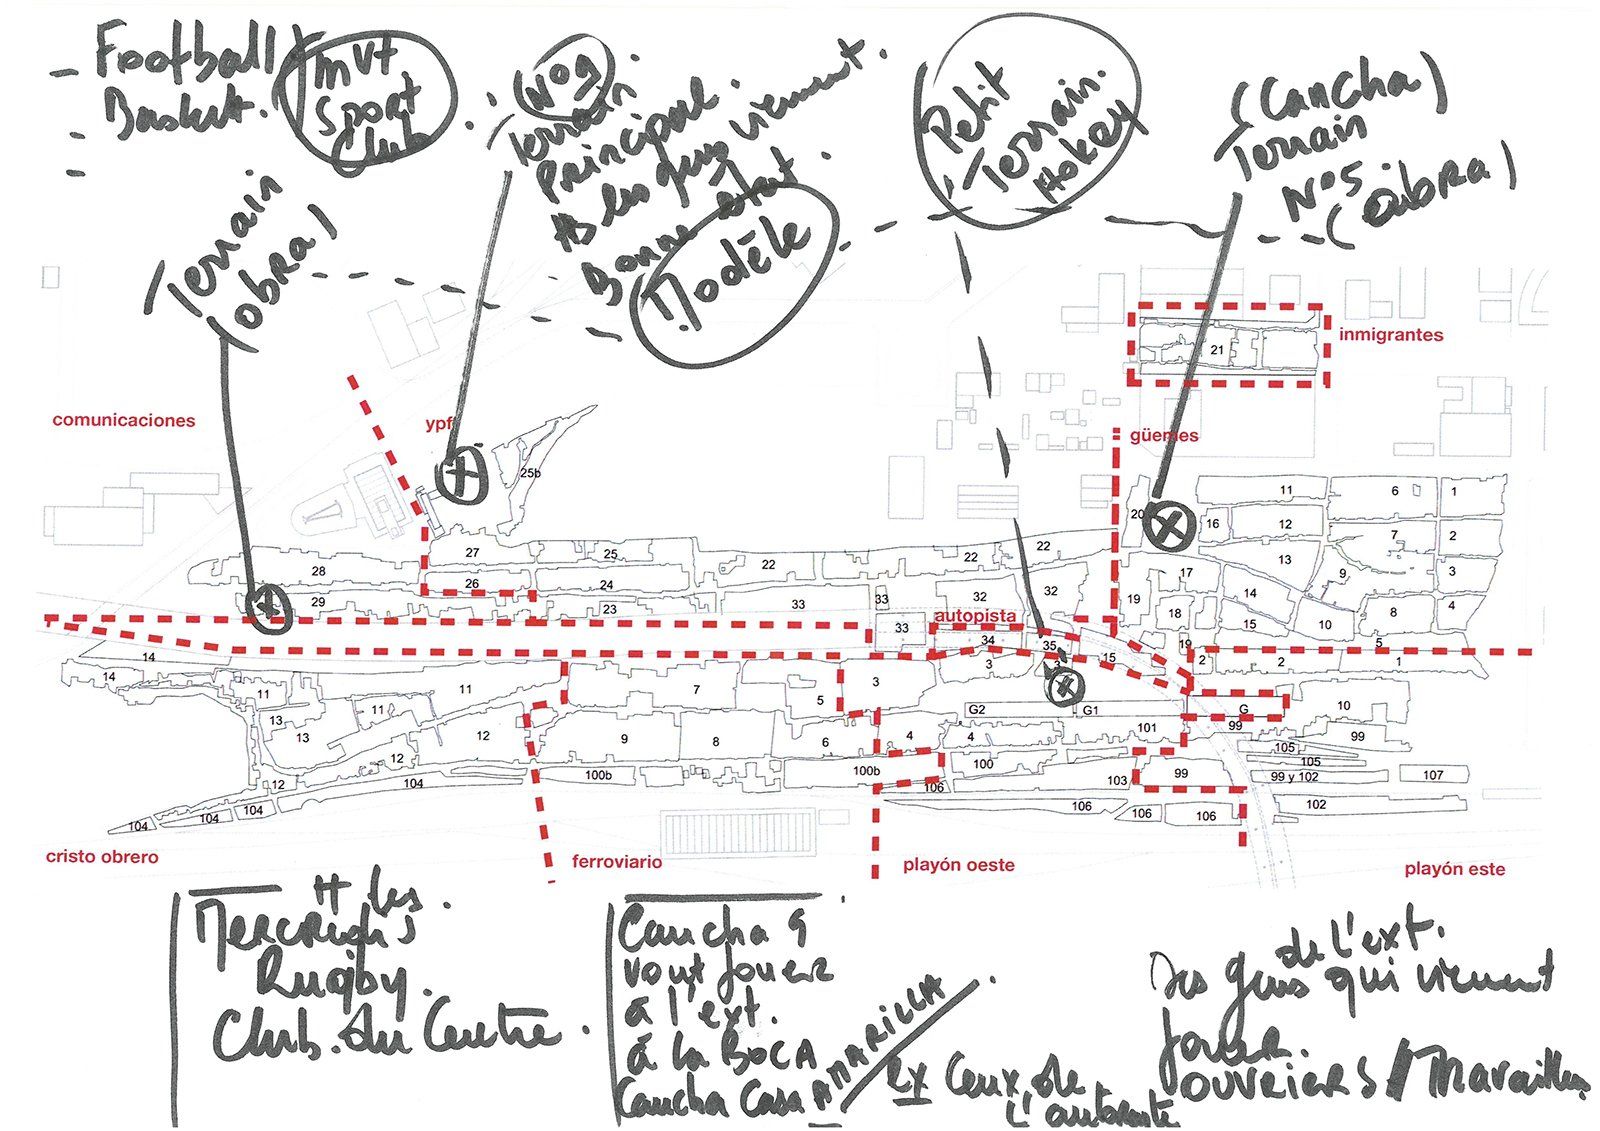 - Football
- Basket.
-
mvt
Sport
Club
(N°9
Terrain
Principal.
des gens viennent.
Bonne état.
Modèle
Petit
Terrain.
Hokey
(Cancha)
Terrain
N°5
(obra)
Terrain
(obra)
inmigrantes
21
comunicaciones
ypf
güemes
25b
20
11
6
1
16
12
7
2
27
25
22
22
22
13
28
26
24
17
9
3
29
23
33
33
32
32
19
18
14
8
4
33
autopista
34
35
15
10
19
5
14
3
3
15
2
2
1
14
11
11
7
5
3
13
11
G2
G1
G
10
13
12
9
8
6
4
4
101
99
99
12
105
105
12
104
100b
100b
100
103
99
99 y 102
107
106
104
104
104
106
106
106
102
cristo obrero
ferroviario
playón oeste
playón este
les
Mercredis
Rugby.
Club. du Centre.
Cancha 9
vont jouer
à l'ext.
à la BOCA
Cancha Casa AMARILLA
ex Ceux de
l'autoroute
de l'ext.
des gens qui viennent
jouer.
OUVRIERS /